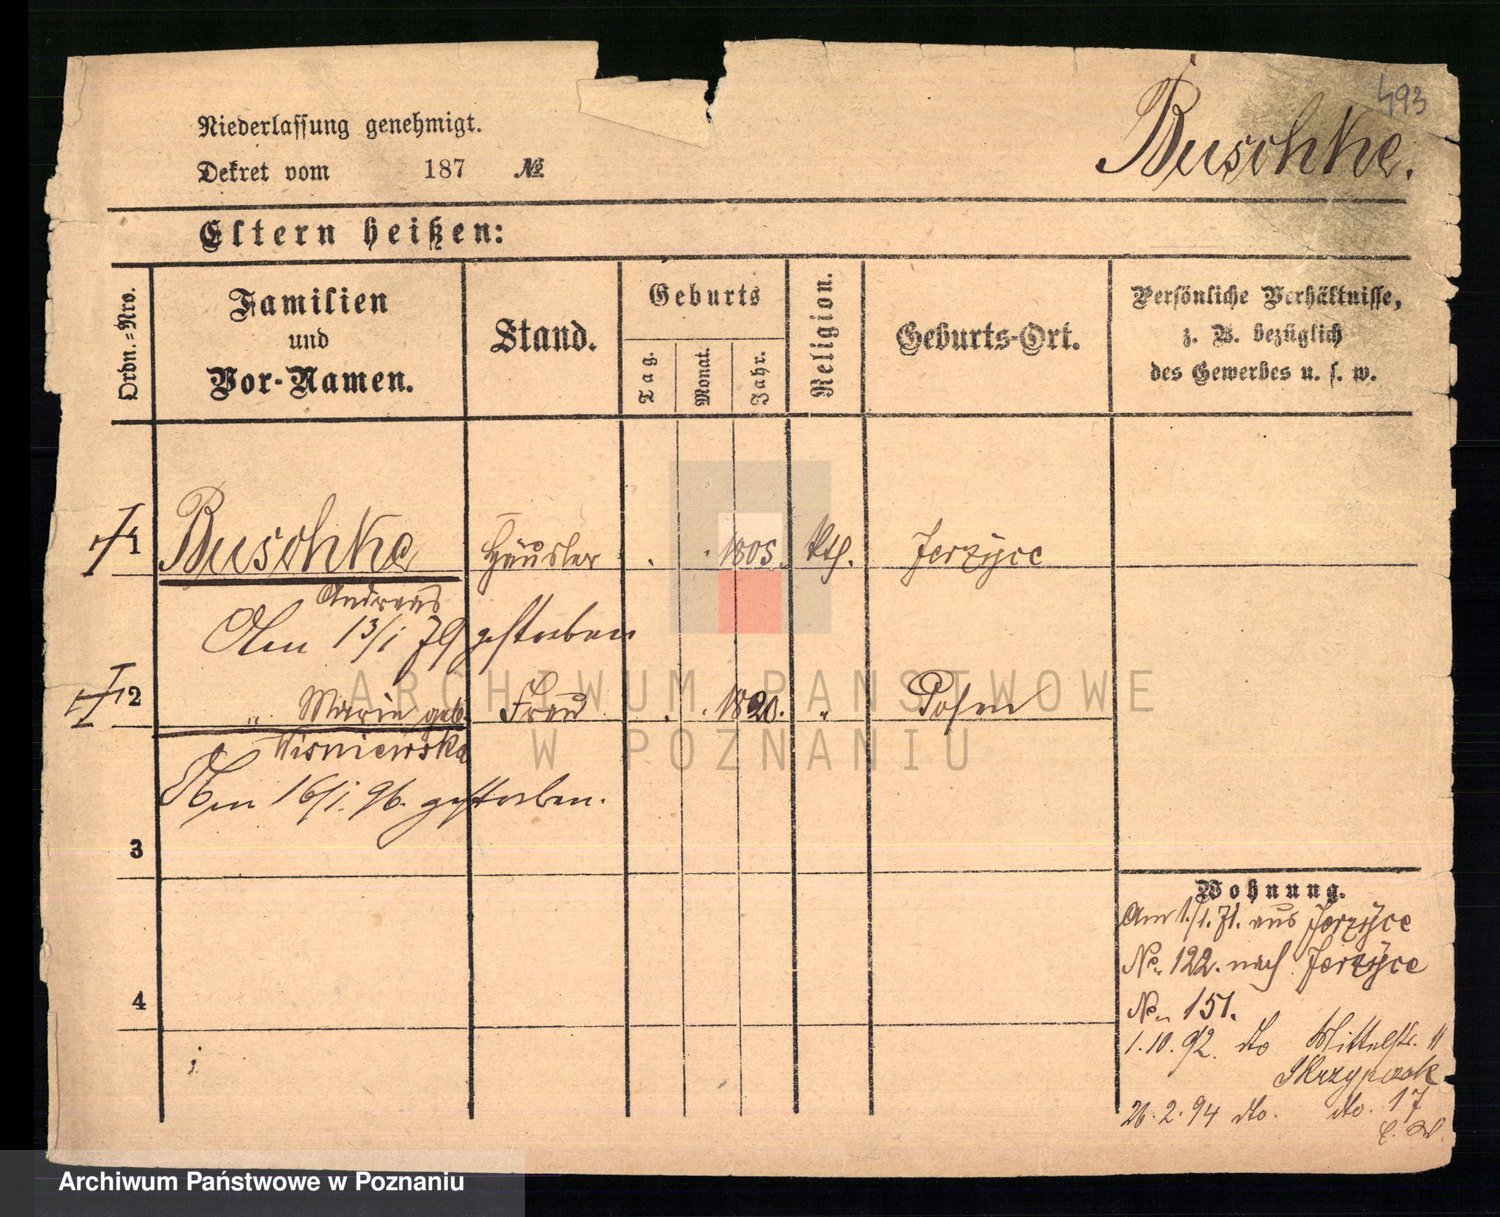 493
Niederlassung genehmigt.
Buschke.
Dekret vom 187 №
Eltern heißen:
Ordn.-Nro.
Familien
und
Vor-Namen.
Stand.
Geburts
Tag.
Monat.
Jahr.
Religion.
Geburts-Ort.
Persönliche Verhältnisse,
z. B. bezüglich
des Gewerbes u. s. w.
1 Buschke Häusler . . 1805. kth. Jerzyce
Andreas
Am 13/1 79 gestorben
2 " Marie geb. Frau . . 1820. " Posen
Wisniewska
Am 16/1. 96. gestorben.
3
4
Wohnung.
Am 1./1. 71. aus Jerzyce
No. 122. nach Jerzyce
No. 151.
1.10.92. dto Mittelstr. 11
Skrzypczak
26.2.94 dto. dto. 17
ARCHIWUM PAŃSTWOWE
W POZNANIU
Archiwum Państwowe w Poznaniu